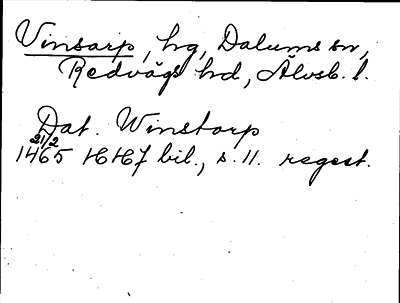 Vinsarp, hg, Dalums sn,
Redvägs hd, Älvsb. l.
Dat. Winstorp
21/2
1465 HH7 bil., s. 11. regest.